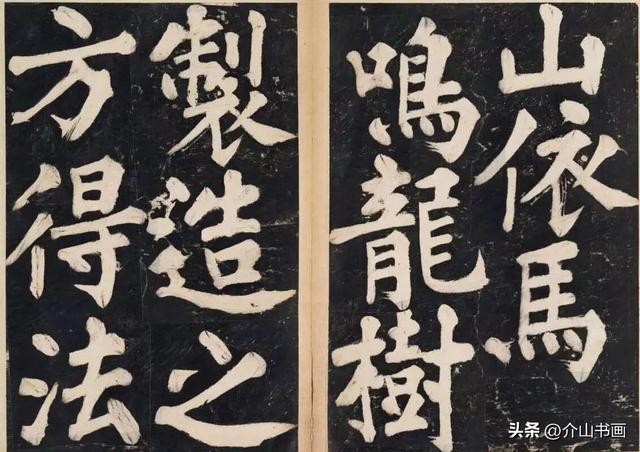 山依馬
鳴龍樹
製造之
方得法
头条 @介山书画